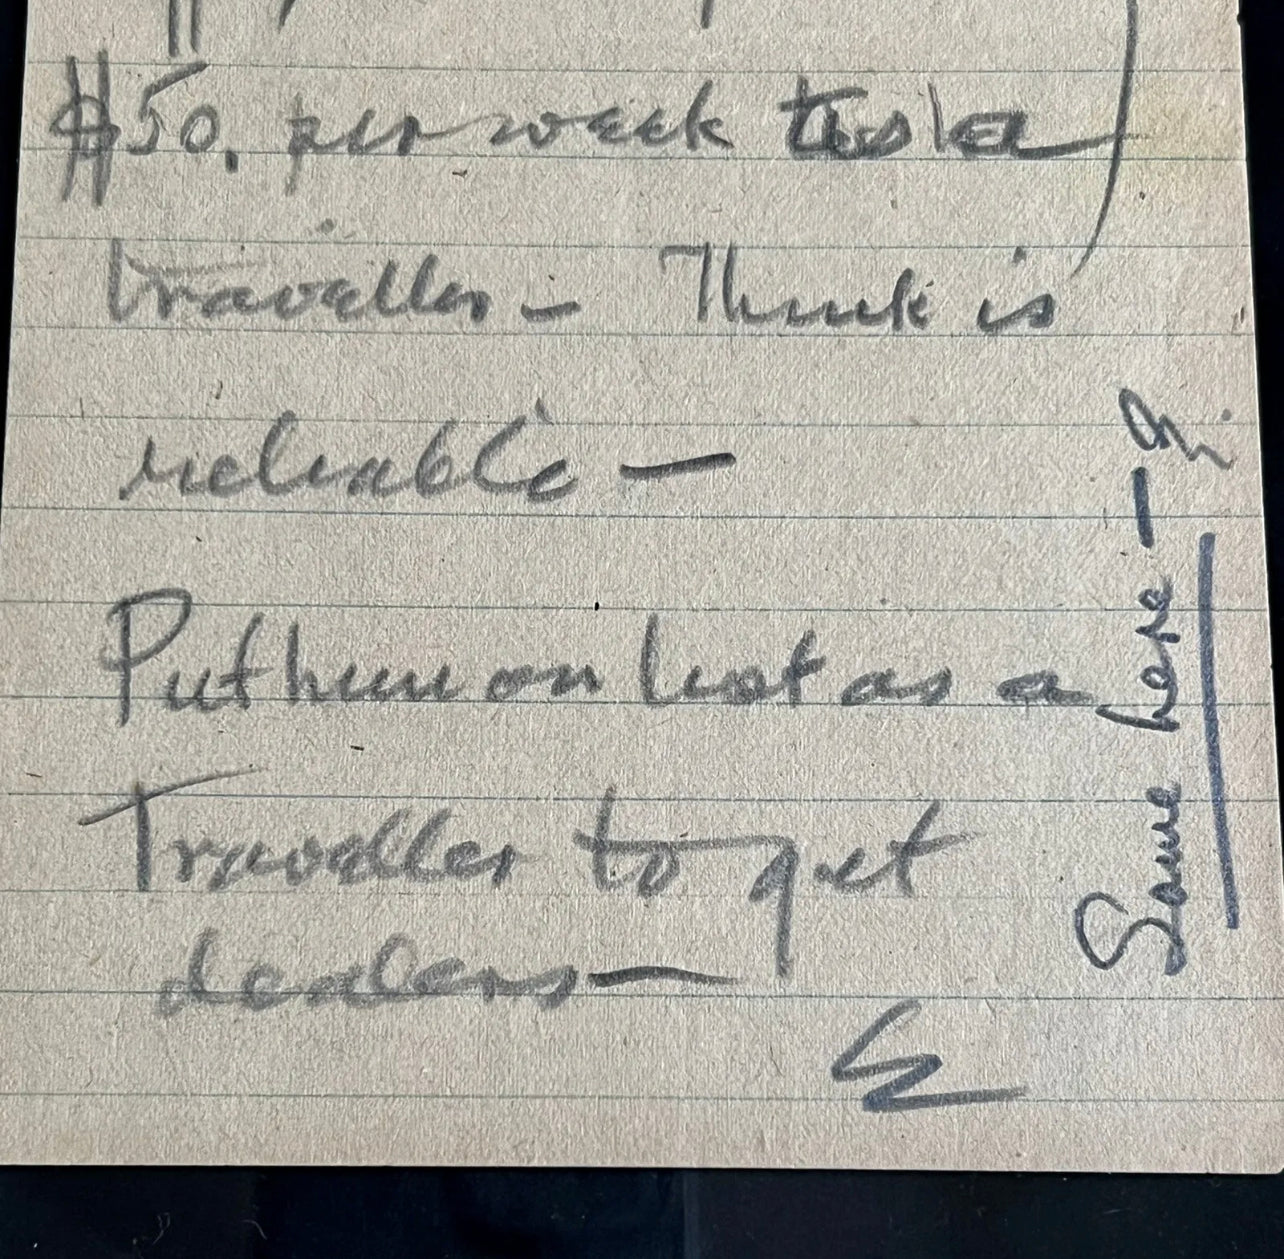 $50. per week is a
traveller – Think is
reliable –
Put him on list as a
Traveller to get
dealers –
E
Same here –